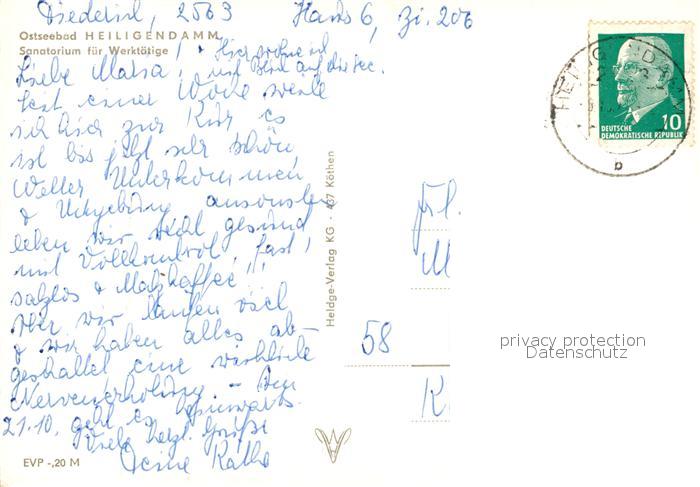 2563 Haus 6, Zi. 206
Ostseebad HEILIGENDAMM
Sanatorium für Werktätige
Liebe Maria! * Hier wohne ich
mit Blick auf die See.
Seit einer Woche weile
ich hier zur Kur, es
ist bis jetzt sehr schön,
Wetter Unterkommen
& Umgebung, ansonsten
leben wir recht gesund
mit Vollkornbrot, fast
salzlos & Malzkaffee",
aber wir laufen viel
& wir haben alles ab-
geschaltet eine wirkliche
Nervenerholung. - Am
21.10. geht es heimwärts.
Viele herzl. Grüße
Deine Käthe
EVP -,20 M
Heldge-Verlag KG - 437 Köthen
Frl.
M
58
K
HEILIGENDAMM
b
10
DEUTSCHE
DEMOKRATISCHE REPUBLIK
privacy protection
Datenschutz